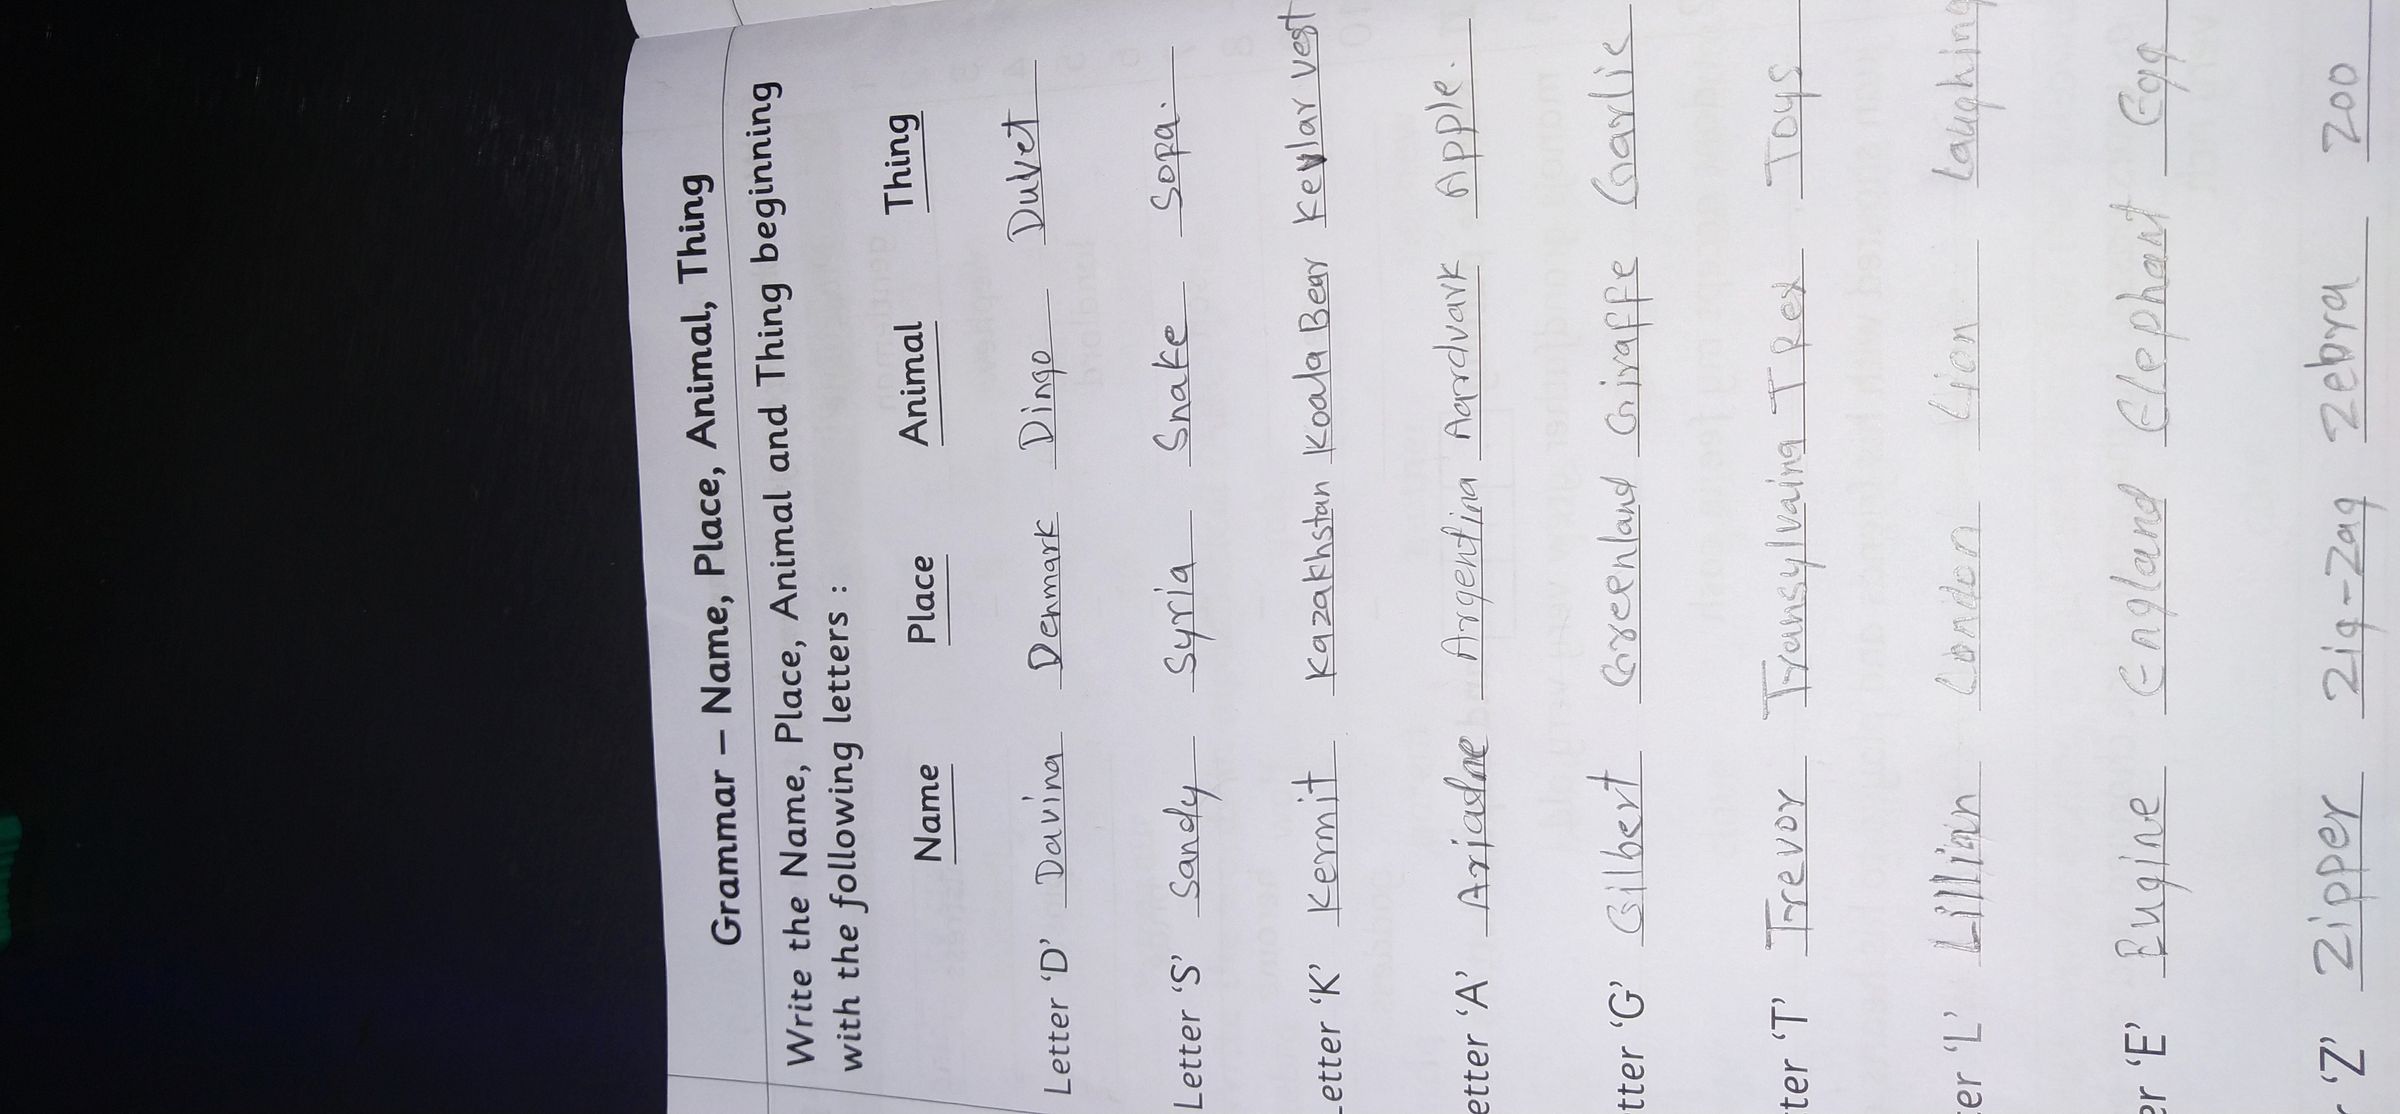 Grammar – Name, Place, Animal, Thing
Write the Name, Place, Animal and Thing beginning
with the following letters :
Name Place Animal Thing
Letter 'D' Davina Denmark Dingo Duvet
Letter 'S' Sandy Syria Snake Sopa.
Letter 'K' Kermit Kazakhstan Koala Bear Kevlar vest
etter 'A' Ariadne Argentina Aardvark Apple.
tter 'G' Gilbert Greenland Giraffe Garlic
ter 'T' Trevor Transylvaina T Rex Toys
er 'L' Lillian London Lion Laughing
er 'E' Eugine England Elephant Egg
r 'Z' Zipper Zig-Zag Zebra Zoo